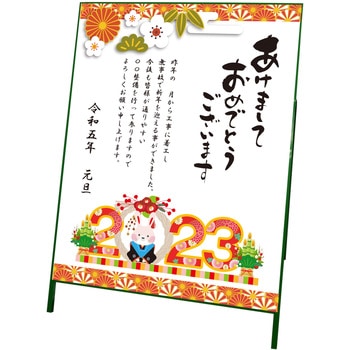 あけまして
おめでとう
ございます
昨年の　月から工事に着工し
無事故で新年を迎える事ができました。
今後も皆様が通りやすい
〇〇整備を行って参りますので
よろしくお願い申し上げます。
令和五年　元旦
2023